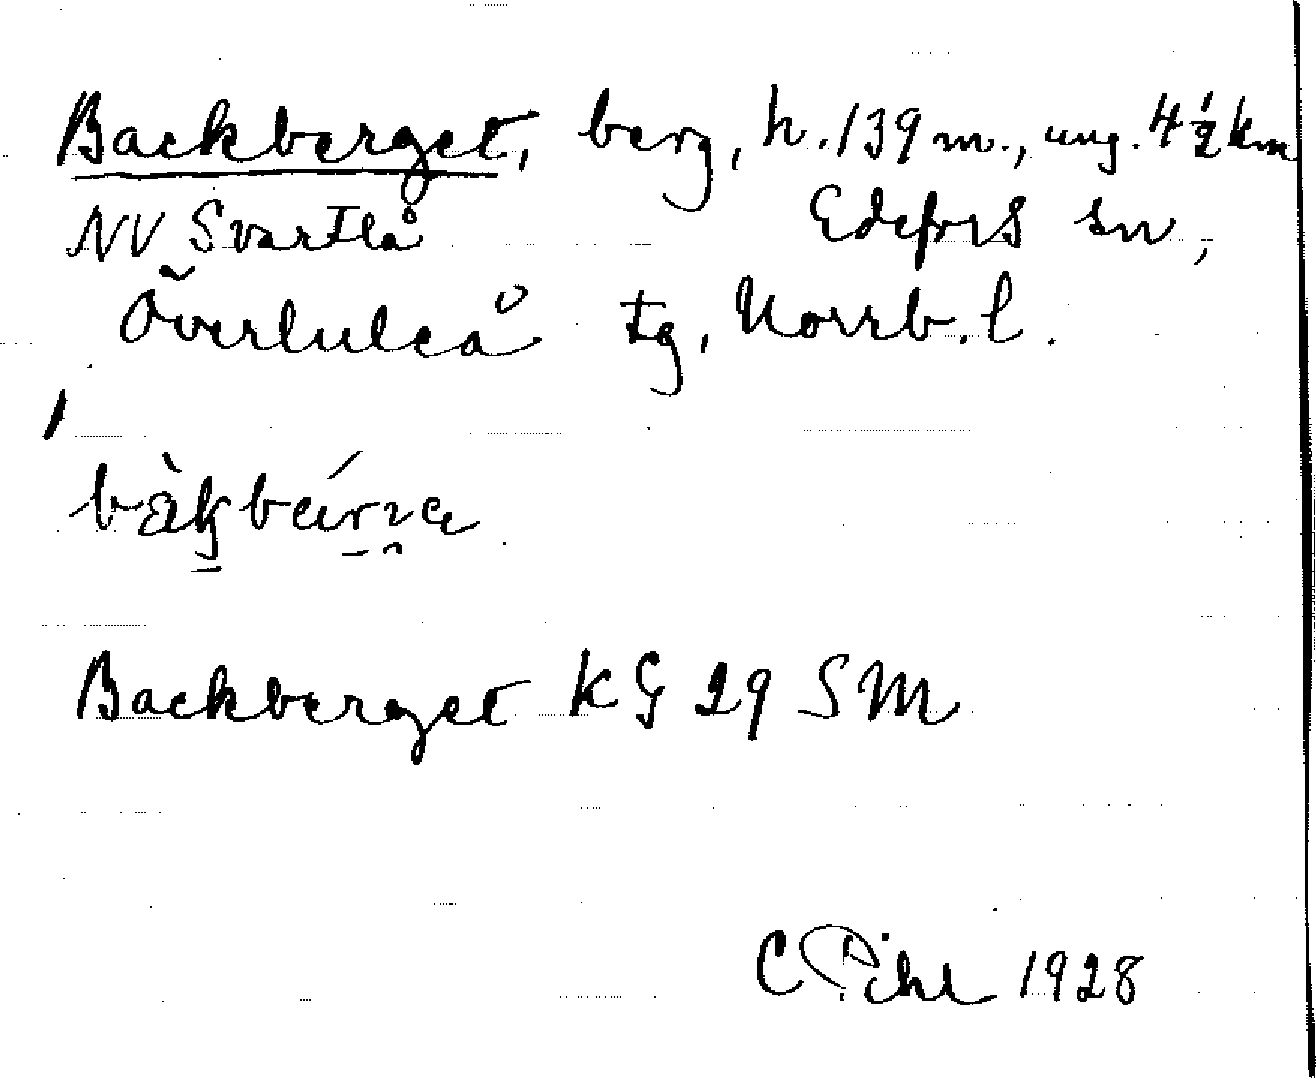 Backberget, berg, h. 139 m., ung. 4 ½ km
NV Svartlå Edefors sn,
Överluleå tg, Norrb. l.
bàkbǽrʒe
Backberget KG 29 SM
C Pihl 1928